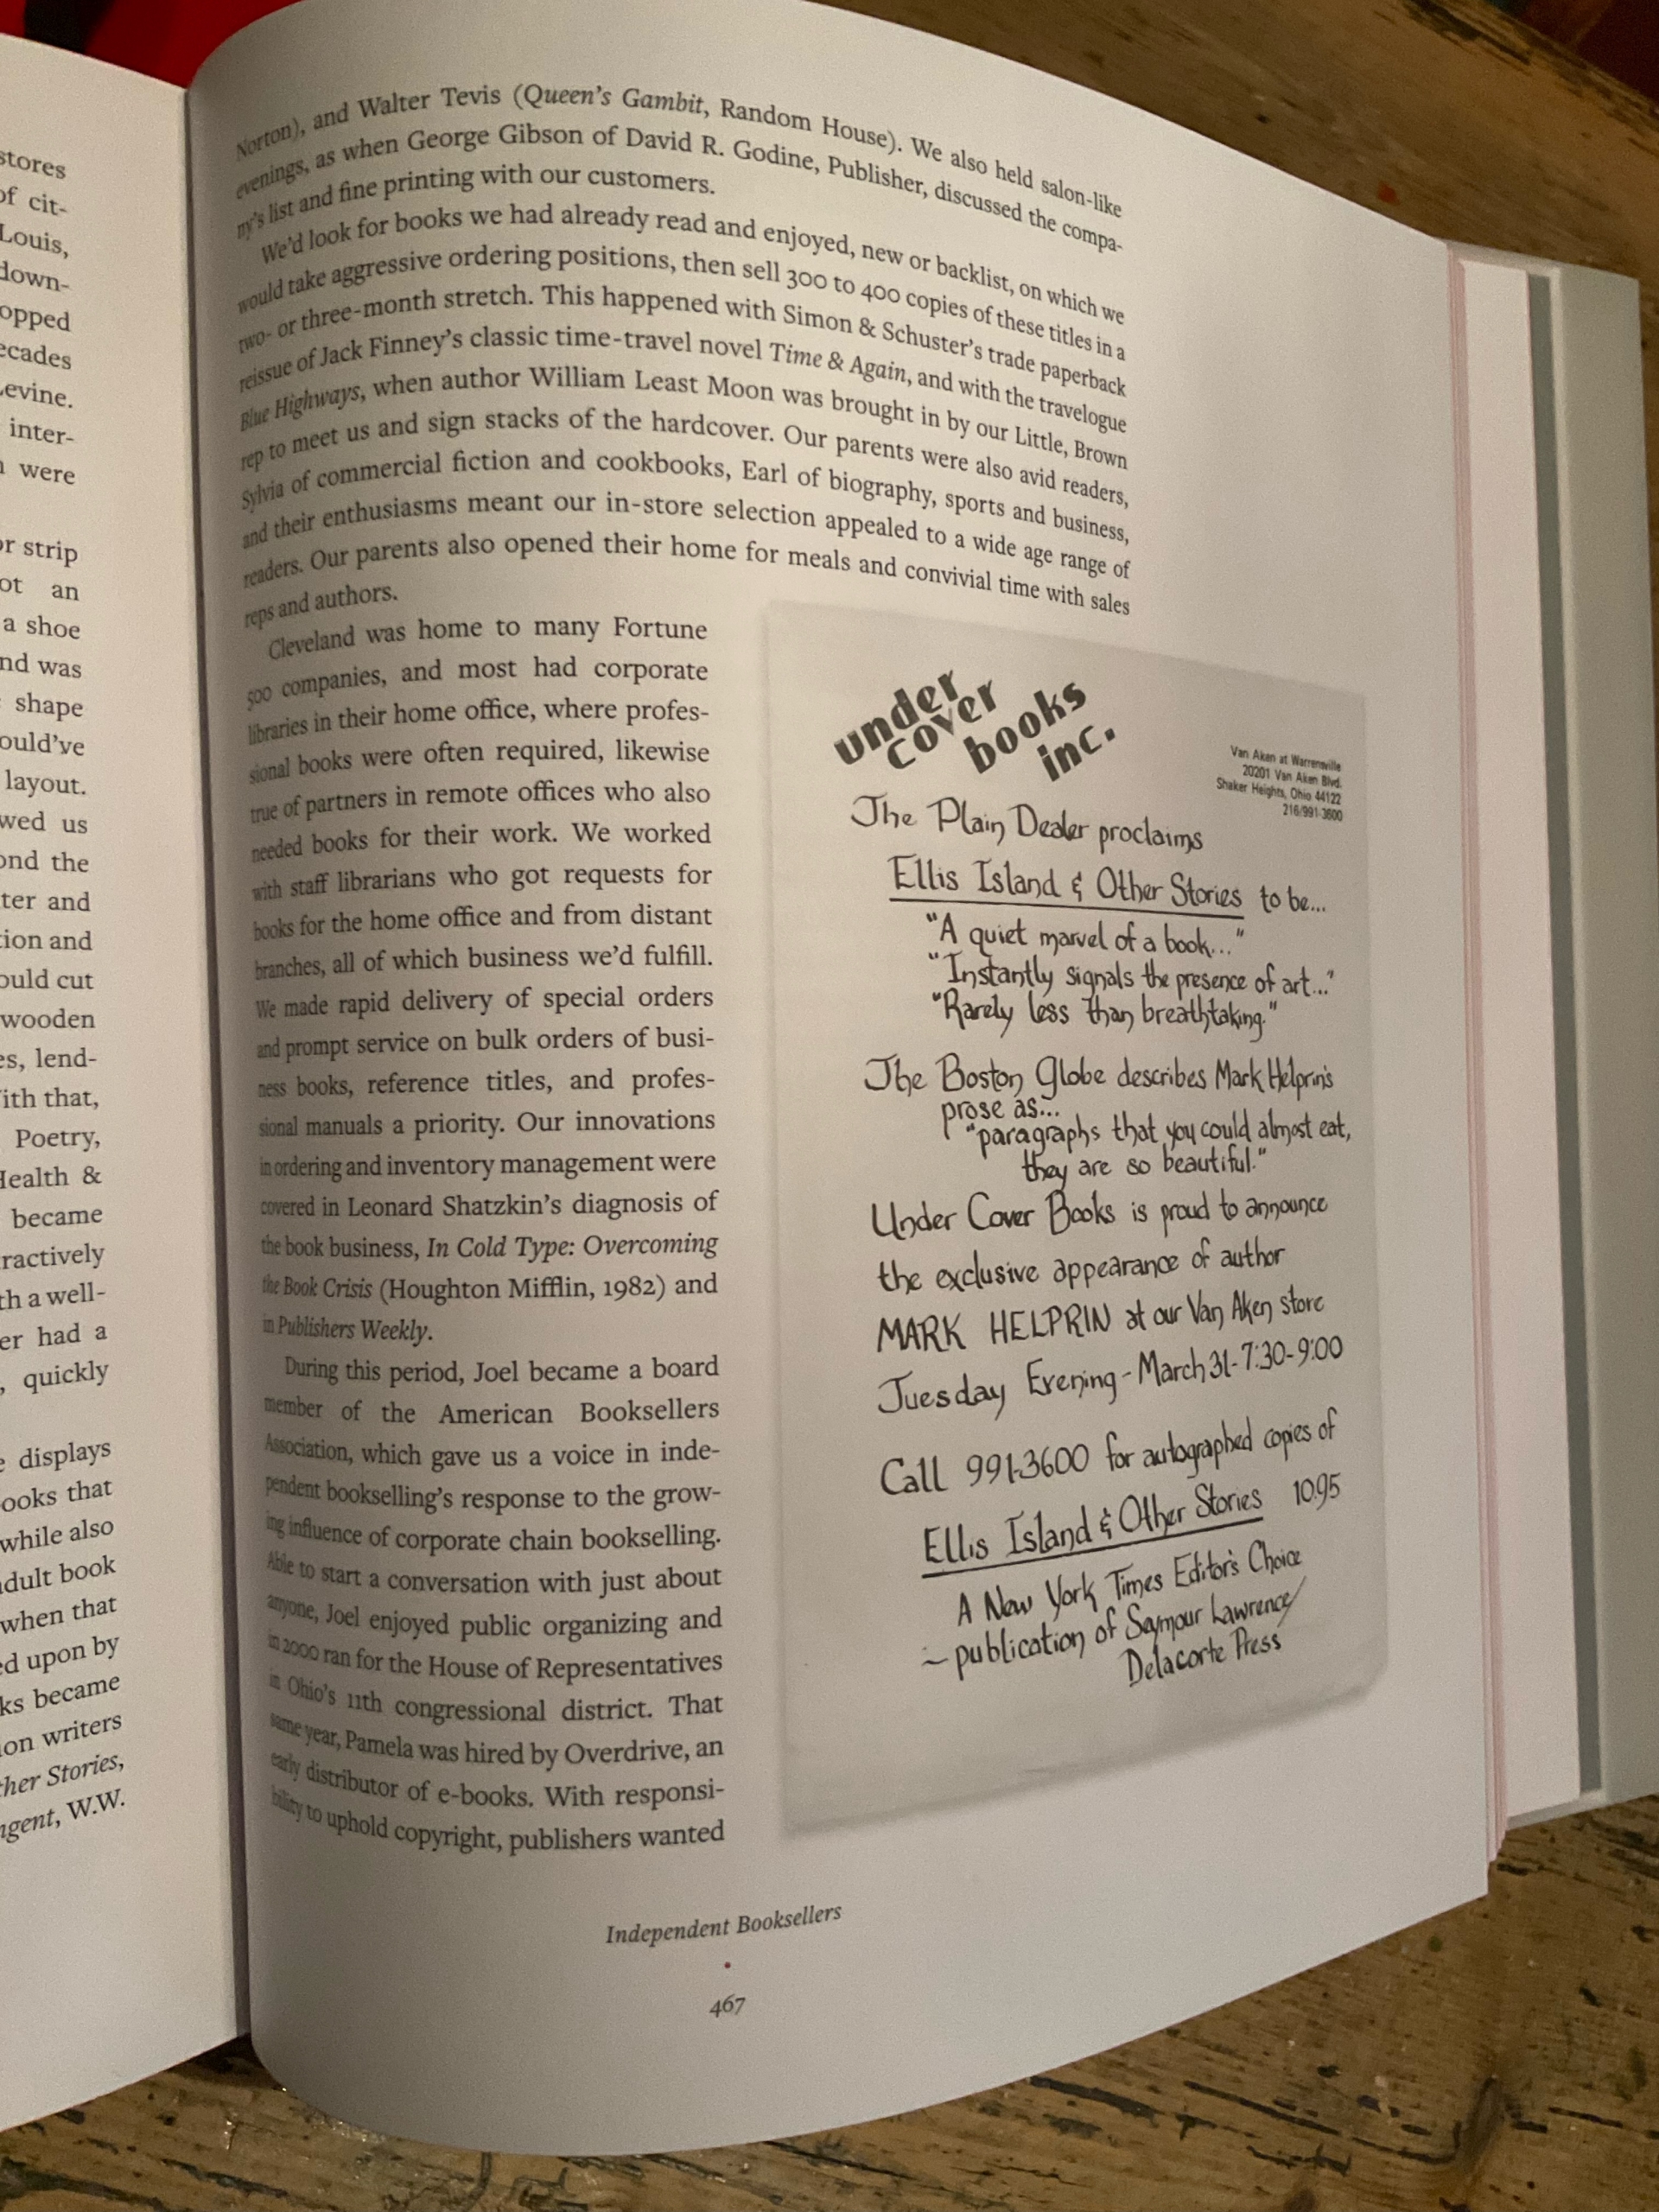 stores
of cit-
Louis,
down-
opped
ecades
Levine.
inter-
were
or strip
ot an
a shoe
nd was
shape
ould've
layout.
wed us
ond the
ter and
tion and
ould cut
wooden
es, lend-
ith that,
Poetry,
Health &
became
ractively
th a well-
er had a
, quickly
e displays
ooks that
while also
adult book
when that
ed upon by
ks became
ion writers
ther Stories,
ngent, W.W.
Norton), and Walter Tevis (Queen's Gambit, Random House). We also held salon-like
evenings, as when George Gibson of David R. Godine, Publisher, discussed the compa-
ny's list and fine printing with our customers.
We'd look for books we had already read and enjoyed, new or backlist, on which we
would take aggressive ordering positions, then sell 300 to 400 copies of these titles in a
two- or three-month stretch. This happened with Simon & Schuster's trade paperback
reissue of Jack Finney's classic time-travel novel Time & Again, and with the travelogue
Blue Highways, when author William Least Moon was brought in by our Little, Brown
rep to meet us and sign stacks of the hardcover. Our parents were also avid readers,
Sylvia of commercial fiction and cookbooks, Earl of biography, sports and business,
and their enthusiasms meant our in-store selection appealed to a wide age range of
readers. Our parents also opened their home for meals and convivial time with sales
reps and authors.
Cleveland was home to many Fortune
500 companies, and most had corporate
libraries in their home office, where profes-
sional books were often required, likewise
true of partners in remote offices who also
needed books for their work. We worked
with staff librarians who got requests for
books for the home office and from distant
branches, all of which business we'd fulfill.
We made rapid delivery of special orders
and prompt service on bulk orders of busi-
ness books, reference titles, and profes-
sional manuals a priority. Our innovations
in ordering and inventory management were
covered in Leonard Shatzkin's diagnosis of
the book business, In Cold Type: Overcoming
the Book Crisis (Houghton Mifflin, 1982) and
in Publishers Weekly.
During this period, Joel became a board
member of the American Booksellers
Association, which gave us a voice in inde-
pendent bookselling's response to the grow-
ing influence of corporate chain bookselling.
Able to start a conversation with just about
anyone, Joel enjoyed public organizing and
in 2000 ran for the House of Representatives
in Ohio's 11th congressional district. That
same year, Pamela was hired by Overdrive, an
early distributor of e-books. With responsi-
bility to uphold copyright, publishers wanted
under
cover
books
inc.
Van Aken at Warrensville
20201 Van Aken Blvd.
Shaker Heights, Ohio 44122
216/991-3600
The Plain Dealer proclaims
Ellis Island & Other Stories to be...
"A quiet marvel of a book..."
"Instantly signals the presence of art..."
"Rarely less than breathtaking."
The Boston Globe describes Mark Helprin's
prose as...
"paragraphs that you could almost eat,
they are so beautiful."
Under Cover Books is proud to announce
the exclusive appearance of author
MARK HELPRIN at our Van Aken store
Tuesday Evening - March 31 - 7:30-9:00
Call 991-3600 for autographed copies of
Ellis Island & Other Stories 10.95
A New York Times Editor's Choice
~ publication of Seymour Lawrence/
Delacorte Press
Independent Booksellers
467